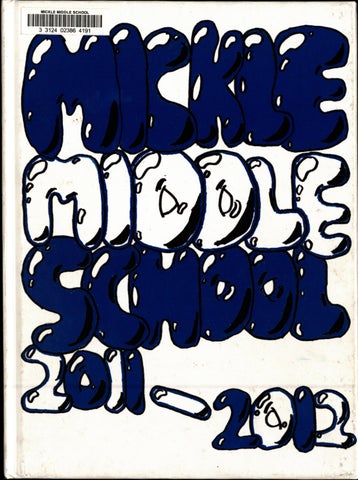 MICKLE MIDDLE SCHOOL
3 3124 02386 4191
MICKLE
MIDDLE
SCHOOL
2011-2012